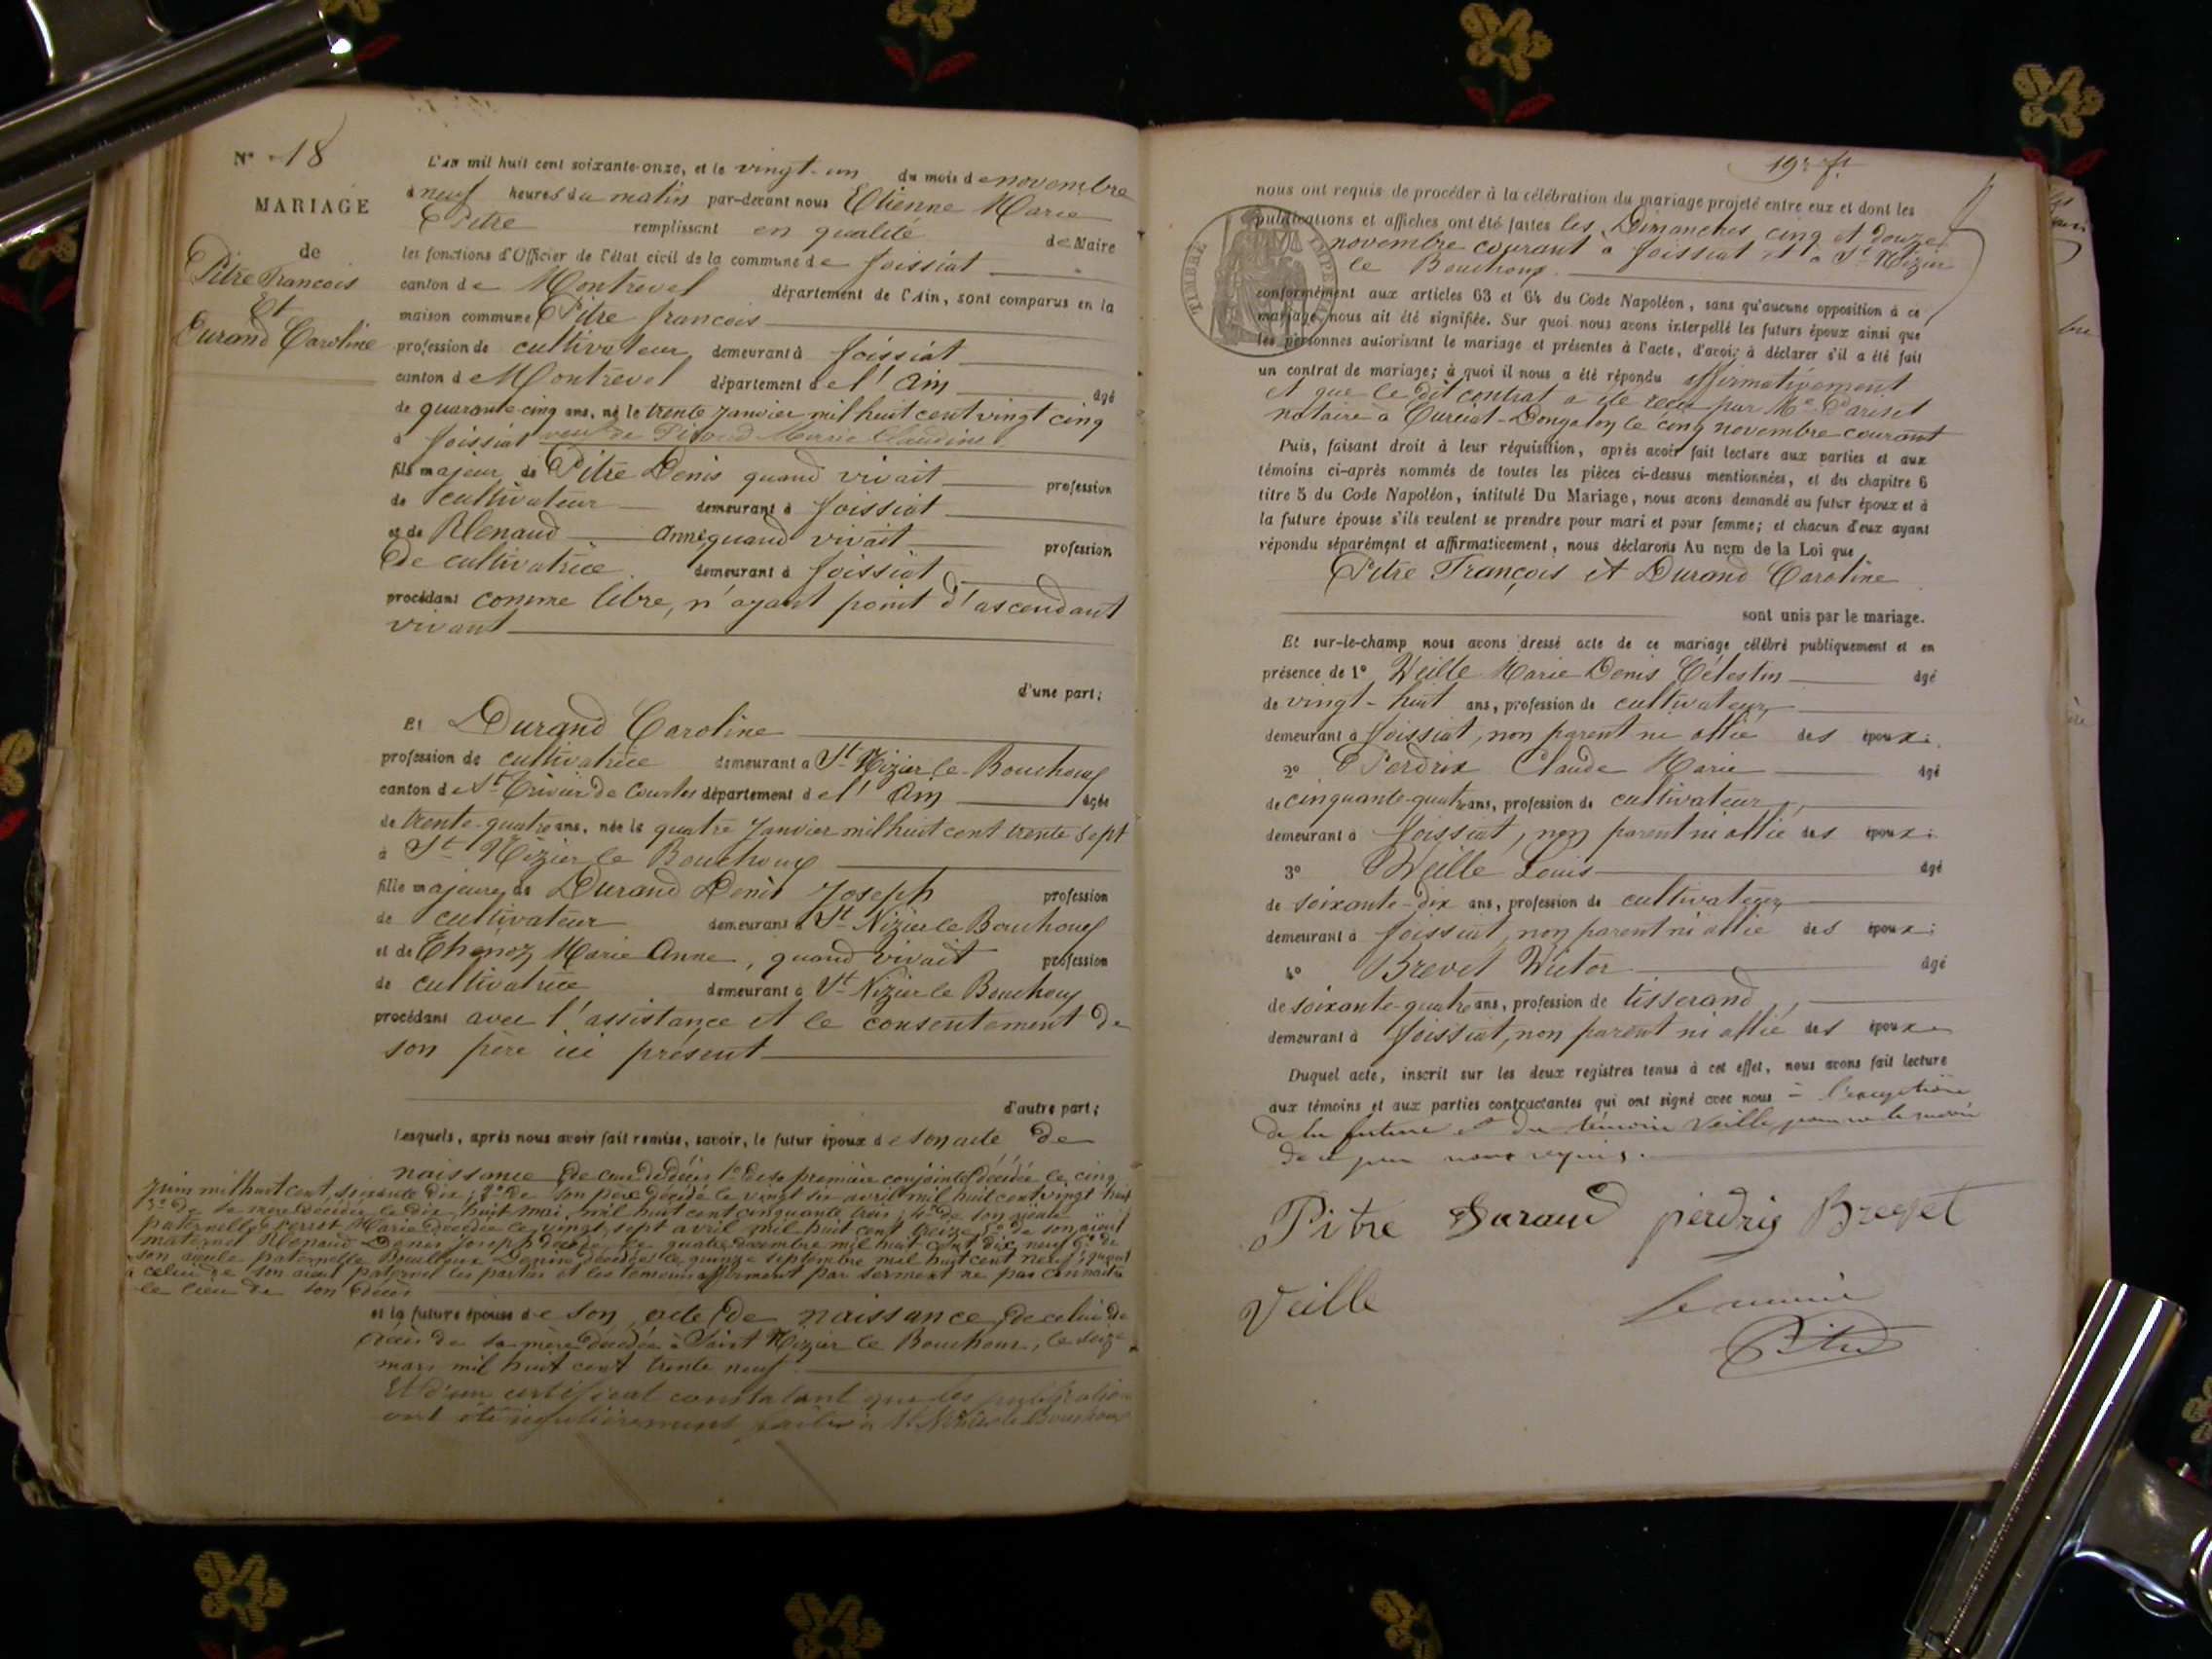 N° 18
MARIAGE
de
Pitre François
Et
Durand Caroline
L'an mil huit cent soixante-onze, et le vingt-un du mois de novembre
à neuf heures du matin par-devant nous Etienne Marie
Pitre remplissant en qualité de Maire
les fonctions d'Officier de l'état civil de la commune de foissiat
canton de Montrevel département de l'Ain, sont comparus en la
maison commune Pitre françois
profession de cultivateur demeurant à foissiat
canton de Montrevel département de l'Ain âgé
de quarante-cinq ans, né le trente Janvier mil huit cent vingt cinq
à foissiat veuf de Marie Claudine
fils majeur de Pitre Denis quand vivait profession
de cultivateur demeurant à foissiat
et de Renaud Anne quand vivait profession
de cultivatrice demeurant à foissiat
procédant comme libre, n'ayant point d'ascendant
vivant
d'une part;
Et Durand Caroline
profession de cultivatrice demeurant à St Nizier le Bouchoux
canton de St Trivier de Courtes département de l'Ain âgée
de trente-quatre ans, née le quatre Janvier mil huit cent trente sept
à St Nizier le Bouchoux
fille majeure de Durand Denis Joseph profession
de cultivateur demeurant à St Nizier le Bouchoux
et de Thenoz Marie Anne, quand vivait profession
de cultivatrice demeurant à St Nizier le Bouchoux
procédant avec l'assistance et le consentement de
son père ici présent
d'autre part;
Lesquels, après nous avoir fait remise, savoir, le futur époux de son acte de
naissance de ceux de décès 1° de sa première conjointe décédée le cinq
juin mil huit cent soixante dix; 2° de son père décédé le vingt six avril mil huit cent vingt huit
3° de sa mère décédée le dix huit mai mil huit cent cinquante trois; 4° de son aïeule
paternelle Perret Marie décédée le vingt sept avril mil huit cent treize 5° de son aïeul
maternel Renaud Denis Joseph décédé le quatre décembre mil huit cent dix neuf 6° de
son aïeule paternelle Bouilloux Denise décédée le quinze septembre mil huit cent neuf; quant
à celui de son aïeul paternel les parties et les témoins affirment par serment ne pas connaître
le lieu de son décès
et la future épouse de son acte de naissance de celui de
décès de sa mère décédée à Saint Nizier le Bouchoux, le seize
mars mil huit cent trente neuf
Et d'un certificat constatant que les publications
ont été régulièrement faites à St Nizier le Bouchoux
19e ft
nous ont requis de procéder à la célébration du mariage projeté entre eux et dont les
publications et affiches ont été faites les Dimanches cinq et douze
novembre courant à foissiat et à St Nizier
le Bouchoux
TIMBRE IMPERIAL
conformément aux articles 63 et 64 du Code Napoléon, sans qu'aucune opposition à ce
mariage nous ait été signifiée. Sur quoi nous avons interpellé les futurs époux ainsi que
les personnes autorisant le mariage et présentes à l'acte, d'avoir à déclarer s'il a été fait
un contrat de mariage; à quoi il nous a été répondu affirmativement
et que le dit contrat a été reçu par Me Pariset
notaire à Curciat-Dongalon le cinq novembre courant
Puis, faisant droit à leur réquisition, après avoir fait lecture aux parties et aux
témoins ci-après nommés de toutes les pièces ci-dessus mentionnées, et du chapitre 6
titre 5 du Code Napoléon, intitulé Du Mariage, nous avons demandé au futur époux et à
la future épouse s'ils veulent se prendre pour mari et pour femme; et chacun d'eux ayant
répondu séparément et affirmativement, nous déclarons Au nom de la Loi que
Pitre François et Durand Caroline
sont unis par le mariage.
Et sur-le-champ nous avons dressé acte de ce mariage célébré publiquement et en
présence de 1° Veille Marie Denis Célestin âgé
de vingt-huit ans, profession de cultivateur,
demeurant à foissiat, non parent ni allié des époux;
2° Perdrix Claude Marie âgé
de cinquante-quatre ans, profession de cultivateur,
demeurant à foissiat, non parent ni allié des époux;
3° Veille Louis âgé
de soixante-dix ans, profession de cultivateur,
demeurant à foissiat, non parent ni allié des époux;
4° Brevet Victor âgé
de soixante-quatre ans, profession de tisserand,
demeurant à foissiat, non parent ni allié des époux
Duquel acte, inscrit sur les deux registres tenus à cet effet, nous avons fait lecture
aux témoins et aux parties contractantes qui ont signé avec nous à l'exception
de la future et du témoin Veille pour ne le savoir
de ce par nous requis.
Pitre Durand perdrix Brevet
Veille le maire
Pitre